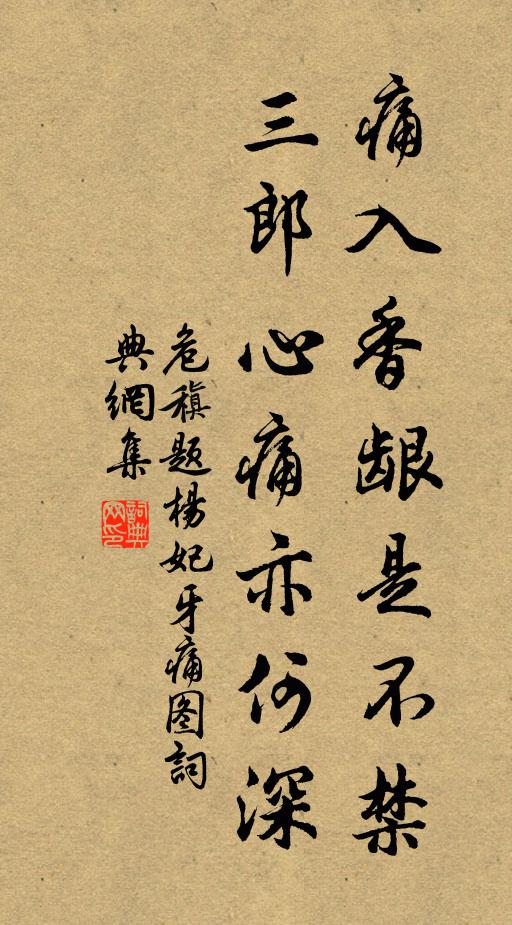 痛入香龈是不禁
三郎心痛亦何深
危稹题楊妃牙痛图詞
典網集
詞典网印